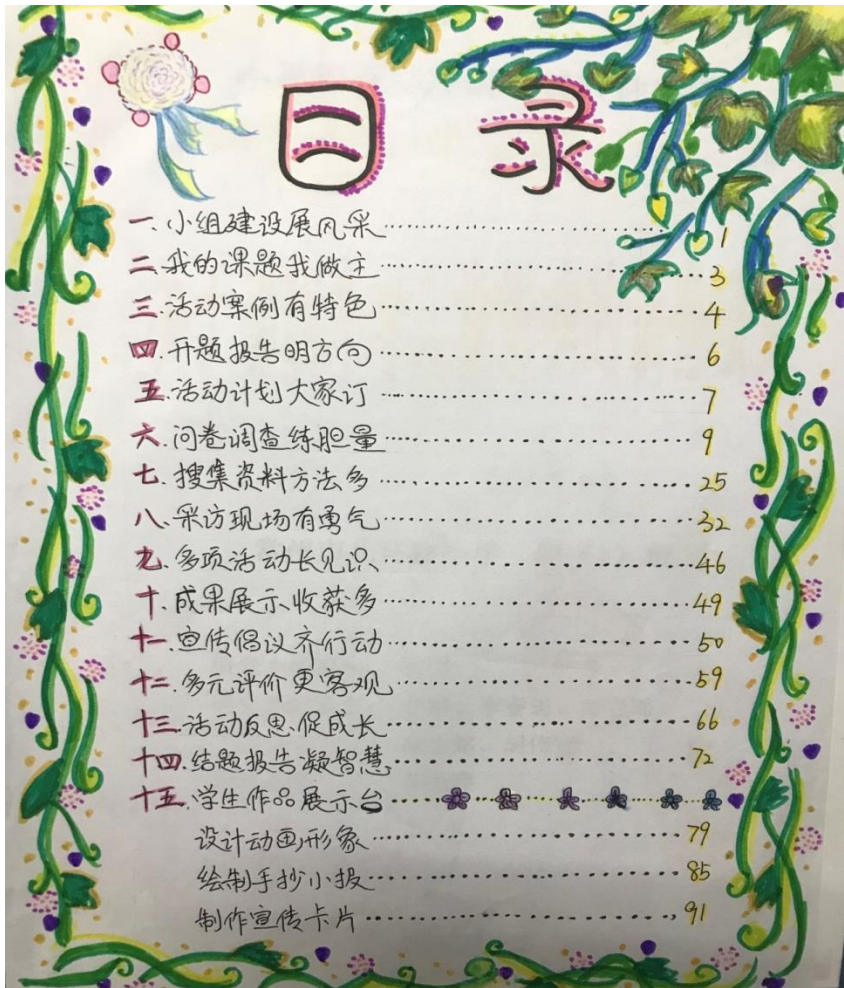 目录
一.小组建设展风采……………………1
二.我的课题我做主……………………3
三.活动案例有特色……………………4
四.开题报告明方向……………………6
五.活动计划大家订……………………7
六.问卷调查练胆量……………………9
七.搜集资料方法多……………………25
八.采访现场有勇气……………………32
九.多项活动长见识……………………46
十.成果展示收获多……………………49
十一.宣传倡议齐行动……………………50
十二.多元评价更客观……………………59
十三.活动反思促成长……………………66
十四.结题报告凝智慧……………………72
十五.学生作品展示台……………………
设计动画形象……………………79
绘制手抄小报……………………85
制作宣传卡片……………………91